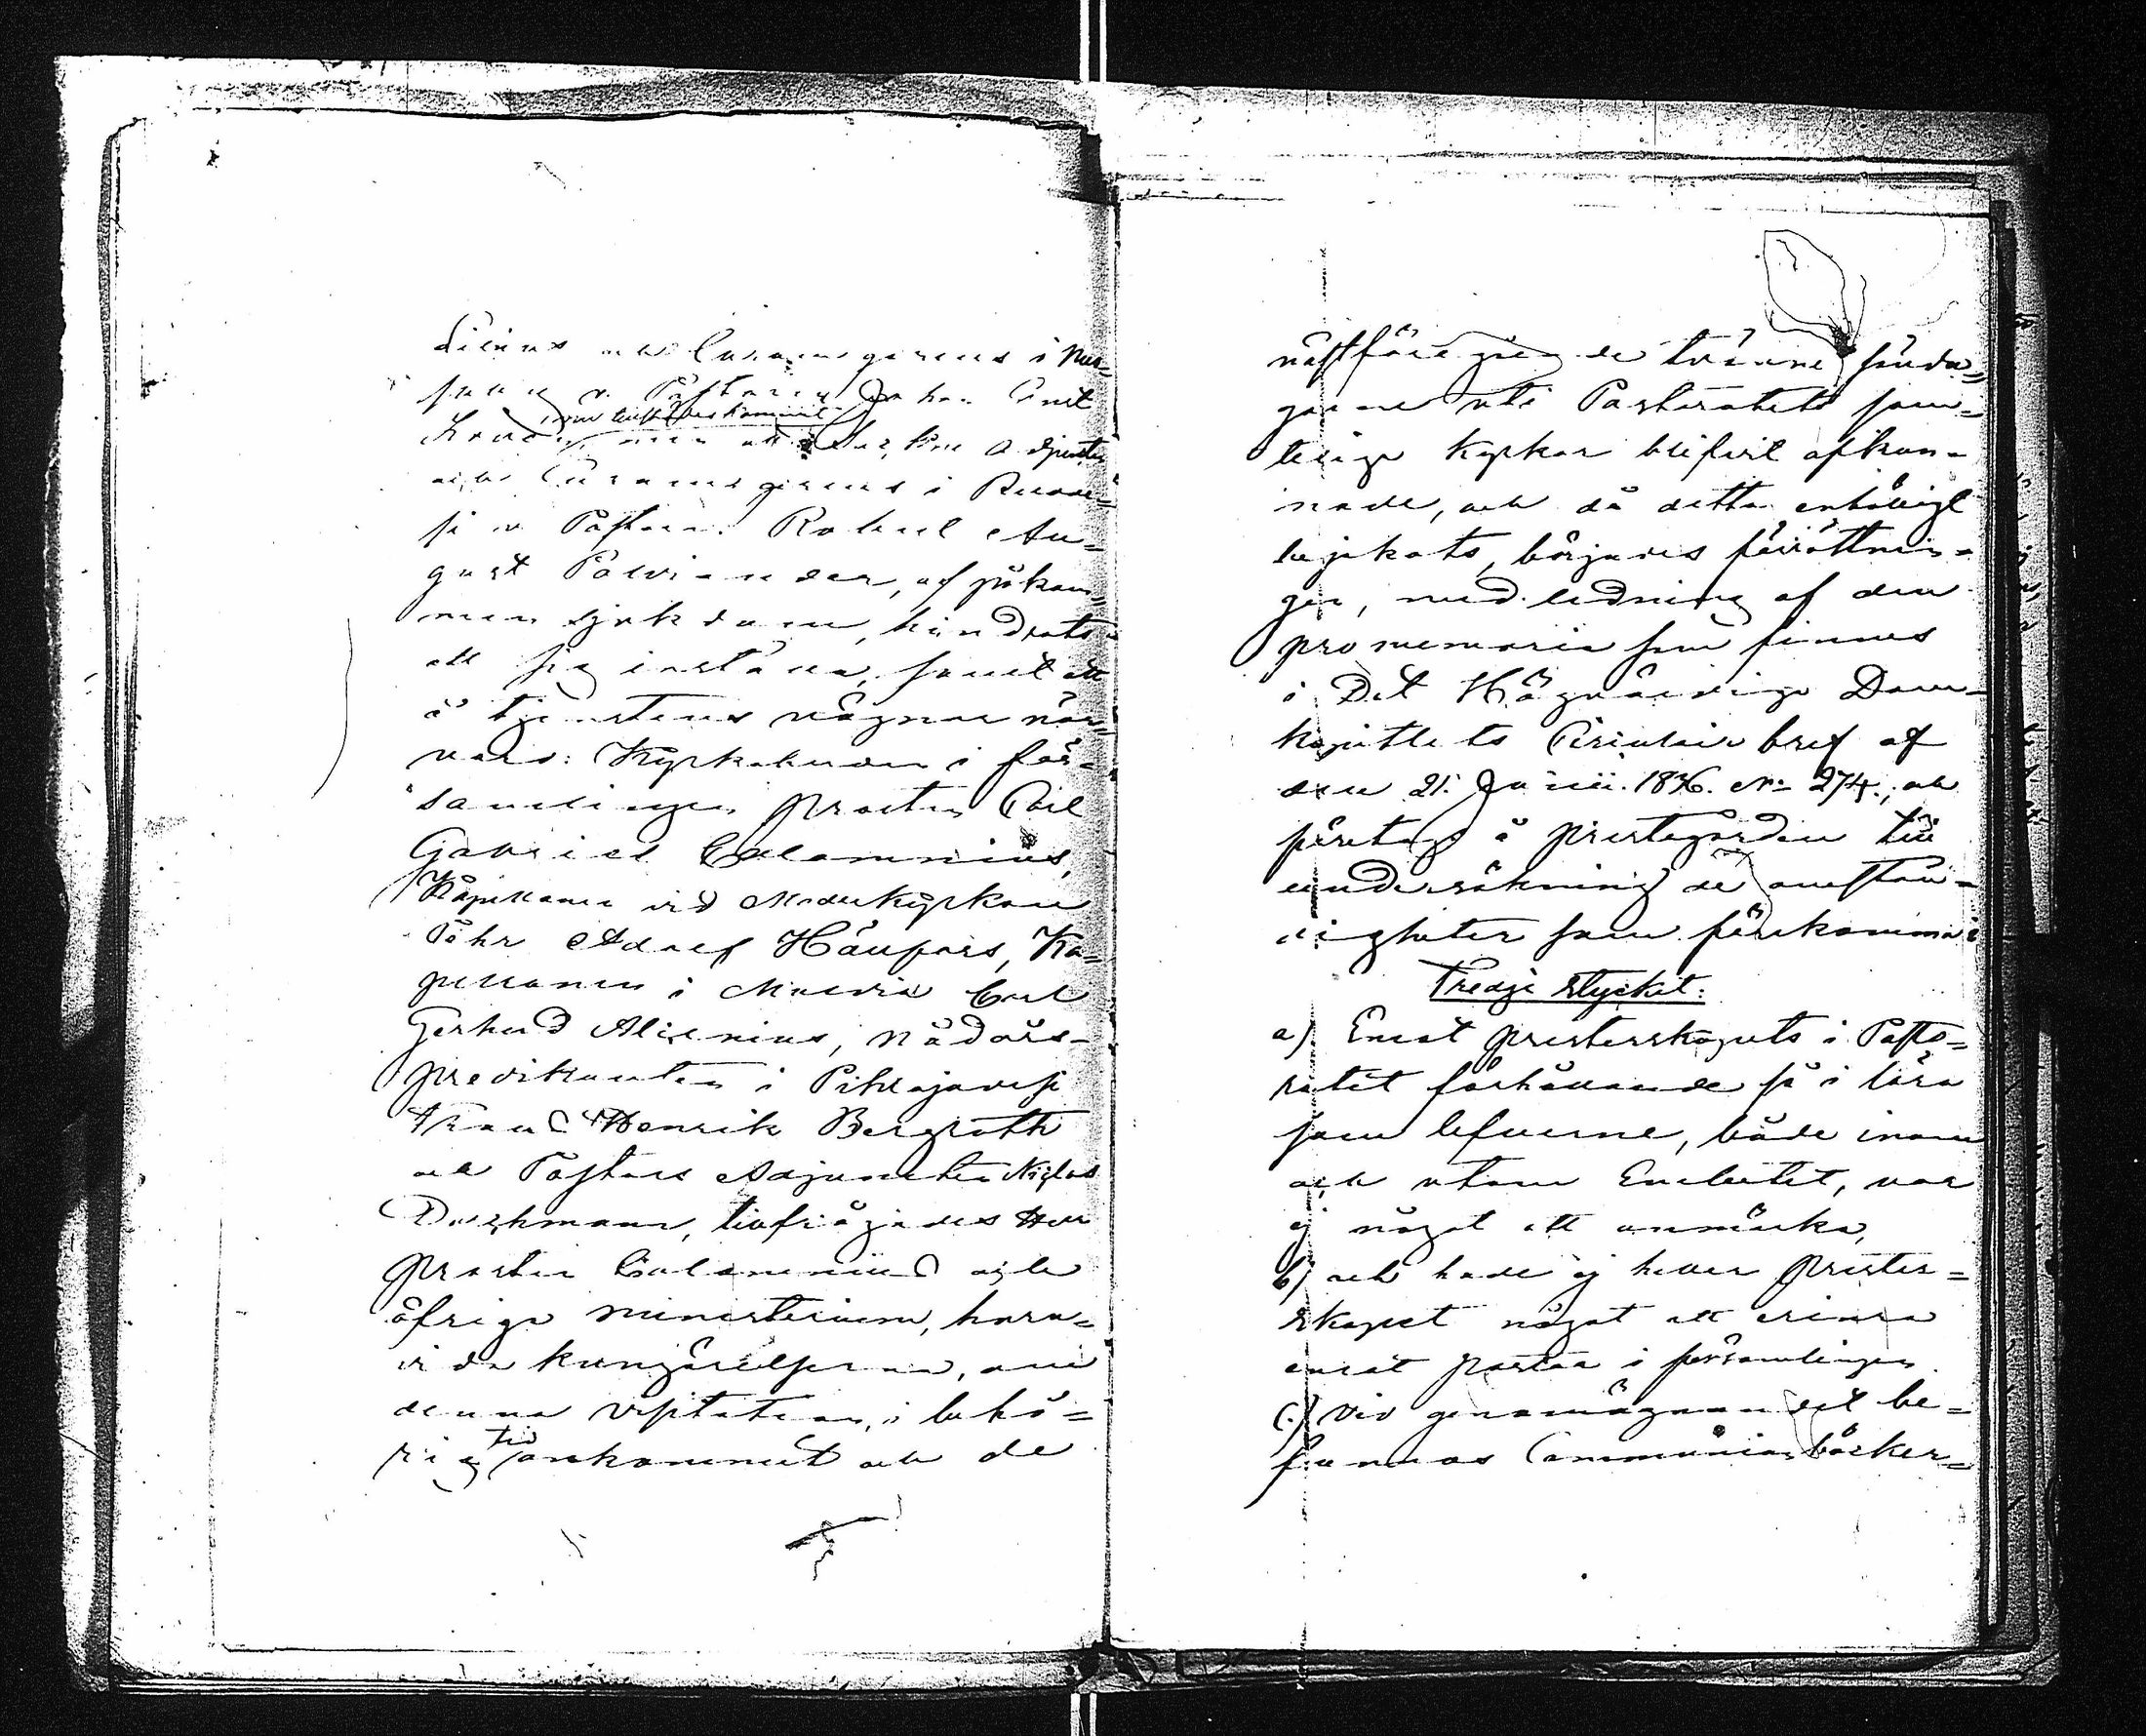 och Curam gerens i
v. Pastoren Johan Ernst
som tillstädeskommit
men att
och Curam gerens i Ruove=
si v. Pastorn Robert Au=
gust Polviander, af påkom=
men sjukdom, hindrats
att sig inställa, samt att
å tjenstens vägnar när=
varo: Kyrkoherden i för=
samlingen Prosten Carl
Gabriel Calamnius,
Kapellanen vid Moderkyrkan
Pehr Adolf Hällfors, Ka=
pellanen i Multia Carl
Gerhard Alcenius, nådårs-
predikanten i Pihlajavesi
Frans Henrik Bergroth
och Pastors Adjuncten Niclas
Durchman, tillfrågades Herr
Prosten Calamnius och
öfriga ministerium, huru=
vida kungörelserna, om
denna visitation, i behö=
rig tid ankommit och de
nästföregående tvänne sönda=
garne uti Pastoratets sam=
teliga Kyrkor blifvit afkun=
nade, och då detta enhälligt
bejakats, börjades förrättnin=
gen, med ledning af den
promemoria som finnes
i Det Högvördiga Dom-
kapitlets Circulair bref af
den 21. Junii. 1836. No 274., och
företogs å prestegården till
undersökning de omstän=
digheter som förekomma i
Tredje Stycket:
a) Emot presterskapets i Pasto=
ratet förhållande så i lära
som lefverne, både inom
och utom Embetet, var
ej något att anmärka,
b) och hade ej heller prester=
skapet något att erinra
emot  i församlingen.
c.) Vid genomögnandet be=
funnos Communionböcker=